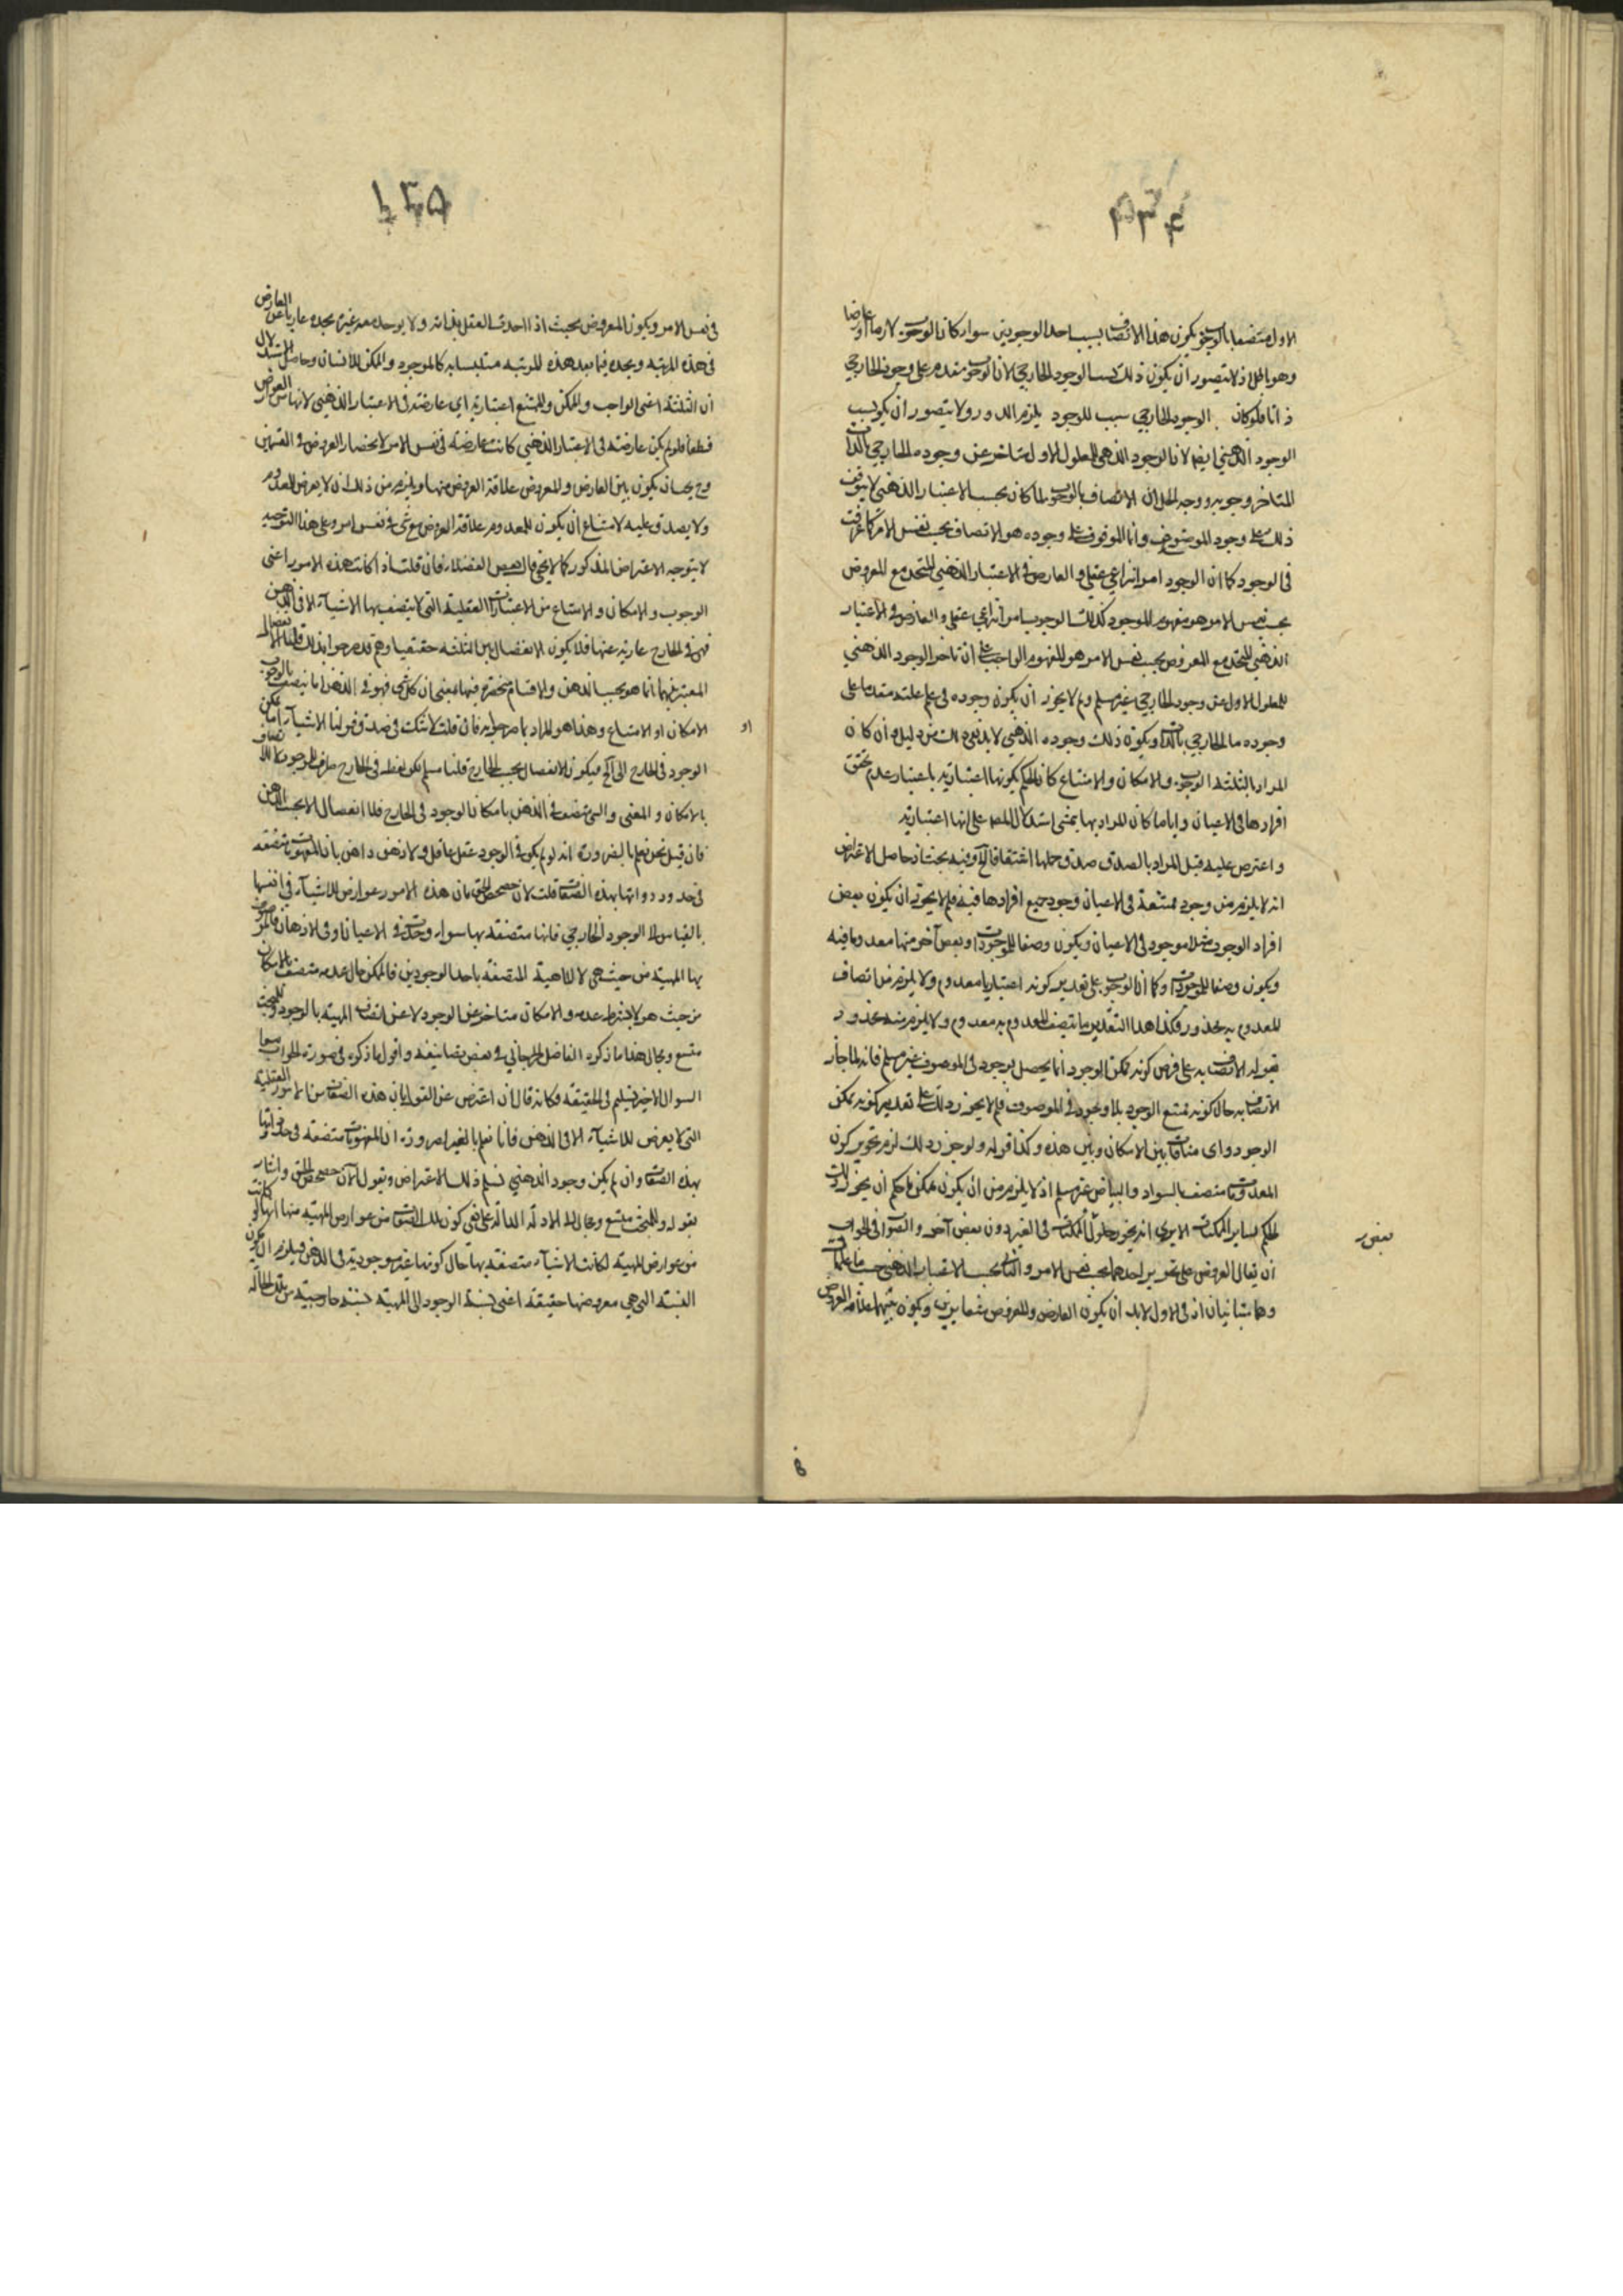 ٥٣٤
الاول متصفا بالوجوب يكون هذا الاتصاف بسبب احد الوجودين سواء كان الوجوب لازما او عارضا
وهو باطل اذ لا يتصور ان يكون ذلك بسبب الوجود الخارجي لان الوجوب مقدم على وجود الخارجي
ذاتا فلو كان الوجود الخارجي سبب للوجود يلزم الدور ولا يتصور ان يكون بسبب
الوجود الذهني ايضا لان الوجود الذهني للمعلول الاول متاخر عن وجوده الخارجي بالذات
المتاخر وجوبه ووجه الحل ان الاتصاف بالوجوب لما كان بحسب الاعتبار الذهني لا يتوقف
ذلك على وجود الموصوف وانما الموقوف على وجوده هو الاتصاف بحسب نفس الامر كما عرفت
في الوجود كما ان الوجود امر انتزاعي عقلي والعارض في الاعتبار الذهني المتحد مع المعروض
بحسب نفس الامر هو مفهوم الموجود كذلك الوجوب امر انتزاعي عقلي والعارض في الاعتبار
الذهني المتحد مع المعروض بحسب نفس الامر هو المفهوم الواجب على ان تاخر الوجود الذهني
للمعلول الاول عن وجود الخارجي غير مسلم ولم لا يجوز ان يكون وجوده في علم علته مقدما على
وجوده الخارجي بالذات ويكون ذلك وجوده الذهني لا بد لنفيه من دليل وان كان
المراد بالثلثة الوجوب والامكان والامتناع كان الحكم بكونها اعتبارية باعتبار عدم تحقق
افرادها في الاعيان واياما كان المراد بها يتمشى استدلال المص على انها اعتبارية
واعترض عليه قبل المراد بالصدق صدق حملها اشتقاقا وفيه بحث اذ حاصل الاعتراض
انه لا يلزم من وجود ممتنعة في الاعيان وجود جميع افرادها فيه فلم لا يجوز ان يكون بعض
افراد الوجود مثلا موجود في الاعيان ويكون وصفا للموجودات وبعض آخر منها معدوما فيه
ويكون وصفا للموجودات وكما ان الوجوب على تقدير كونه اعتباريا معدوم ولا يلزم من اتصاف
المعدوم به محذور فكذا هذا التقدير ما يتصف المعدوم به معدوم ولا يلزم منه محذور
قوله الاتصاف به على فرض كونه ممكن الوجود انما يحصل بوجوده في الموصوف غير مسلم فانه لما جاز
الاتصاف به حال كونه ممتنع الوجود بلا وجوده في الموصوف فلم لا يجوز ذلك على تقدير كونه ممكن
الوجود واى منافاة بين الامكان وبين هذه وكذا قوله ولو جوز ذلك لزم تجويز كون
المعدومات متصف بالسواد والبياض غير مسلم اذ لا يلزم من ان يكون ممكن ما حكم ان يجوز ذلك
الحكم لساير الممكنات الا يرى انه يجوز حلول الممكنات في الغير دون بعض آخر والصواب في الجواب
ان يقال العروض على نحوين احدهما بحسب نفس الامر والثاني بحسب الاعتبار الذهني حسب ما علمت
وهما متباينان اذ في الاول لا بد ان يكون العارض والمعروض متغايرين ويكون بينهما علاقة العروض
١٣٥
في نفس الامر ويكون المعروض بحيث اذا اخذه العقل بذاته ولا يوجد معه غيره يجده عاريا عن العارض
في هذه المرتبه ويجده فيما بعد هذه المرتبه متلبسا به كالموجود والممكن للانسان وحاصل الاستدلال
ان الثلثة اعنى الواجب والممكن والممتنع اعتبارية اي عارضة في الاعتبار الذهني لانها من العوارض
قطعا فلو لم يكن عارضة في الاعتبار الذهني كانت عارضة في نفس الامر لانحصار العروض في القسمين
وح يجب ان يكون بين العارض والمعروض علاقة العروض فيها ويلزم من ذلك ان لا يعرض للمعدوم
ولا يصدق عليه لامتناع ان يكون للمعدوم علاقة العروض مع شئ في نفس امر وعلى هذا التوجيه
لا يتوجه الاعتراض المذكور كما لا يخفى قال بعض الفضلاء فان قلت اذا كانت هذه الامور اعني
الوجوب والامكان والامتناع من الاعتبارات العقلية التي لا يتصف بها الاشياء الا في الذهن
فهى في الخارج عارية عنها فلا يكون الانفصال بين الثلثة حقيقيا وهم قد صرحوا بذلك قلنا الانفصال
المعتبر فيهما انما هو بحسب الذهن والاقسام منحصرة فيها بمعنى ان كل شئ فهو في الذهن اما يتصف بالوجوب
او الامكان او الامتناع وهذا هو المراد بما صرحوا به فان قلت لا شك في صدق قولنا الاشياء اما ممكن
الوجود في الخارج الى آخره فيكون الانفصال بحسب الخارج قلنا مسلم لكن لفظ في الخارج ظرف للوجود لا للاتصاف
بالامكان والمعنى والشئ متصف في الذهن بامكان الوجود في الخارج فلا انفصال الا بحسب الذهن
فان قيل نحن نعلم بالضرورة انه لو لم يكن في الوجود عقل عاقل ولا ذهن ذاهن بان المفهومات متصفة
في حدود ذواتها بهذه الصفات قلت الآن حصحص الحق بان هذه الامور عوارض للاشياء في انفسها
بالقياس الى الوجود الخارجي فانها متصفة بها سواء وجدت في الاعيان او في الاذهان فالمعروض
بها المهية من حيث هي لا الماهية المتصفة باحد الوجودين فالممكن حال عدمه متصف بالامكان
من حيث هو لا بشرط عدمه والامكان متاخر عن الوجود لا عن اتصاف المهية بالوجود وللبحث
متسع ومجال هذا ما ذكره الفاضل الجرجاني في بعض تصانيفه واقول ما ذكره في صورة الجواب عن
السوال الاخير تسليم في الحقيقة فكانه قال ان اعترض عن القول بان هذه الصفات من الامور العقلية
التي لا يعرض للاشياء الا في الذهن فانا نعلم بالضرورة ان المفهومات متصفة في حد ذواتها
بهذه الصفات وان لم يكن وجود الذهني نسلم ذلك الاعتراض ونقول الآن حصحص الحق واشار
بقوله وللبحث متسع ومجال الى الادلة الدالة على نفي كون تلك الصفات من عوارض المهية منها انها لو كانت
من عوارض المهية لكانت الاشياء متصفة بها حال كونها غير موجودة في الذهن فيلزم ان يكون
النسبة التي هي معروضها حقيقة اعنى نسبة الوجود الى المهية نسبة خارجية من تلك الحالة